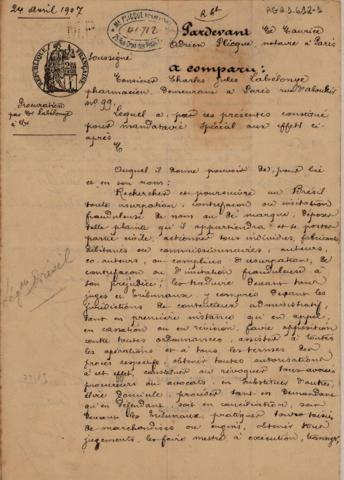 24 avril 1907
Pardevant Me Maurice
Adrien Plicque notaire à Paris
soussigné
a comparu:
Monsieur Charles Jules Labelonye
pharmacien, demeurant à Paris rue d'Aboukir
no 99.
Lequel a, par ces présentes constitué
pour mandataire spécial aux effets ci-
après
M
Procuration
par M. Labelonye
à M
Auquel il donne pouvoir de, pour lui
et en son nom:
Rechercher et poursuivre au Brésil
toute usurpation, contrefaçon ou imitation
frauduleuse de nom ou de marque, déposer
telle plainte qu'il appartiendra et se porter
partie civile, actionner tous individus, fabricants
débitants ou commissionnaires, auteurs,
co-auteurs, ou complices d'usurpation, de
contrefaçon ou d'imitation frauduleuse à
son préjudice; les traduire devant tous
juges et tribunaux y compris devant les
juridictions de contentieux administratif,
tant en première instance qu'en appel,
en cassation ou en révision, faire opposition
contre toutes ordonnances, assister à toutes
les opérations et à tous les termes des
procès respectifs, obtenir toutes autorisations
à cet effet, constituer ou révoquer tous avoués
procureurs ou avocats, en substituer d'autres,
élire domicile, procéder tant en demandant
qu'en défendant, soit en conciliation, soit
devant les tribunaux, pratiquer toutes saisies
de marchandises ou engins, obtenir tous
jugements, les faire mettre à exécution,